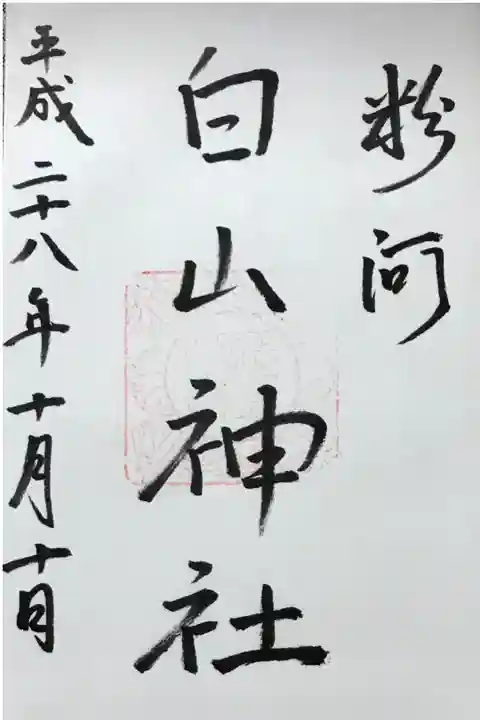 粉河
白山神社
平成二十八年十月十日